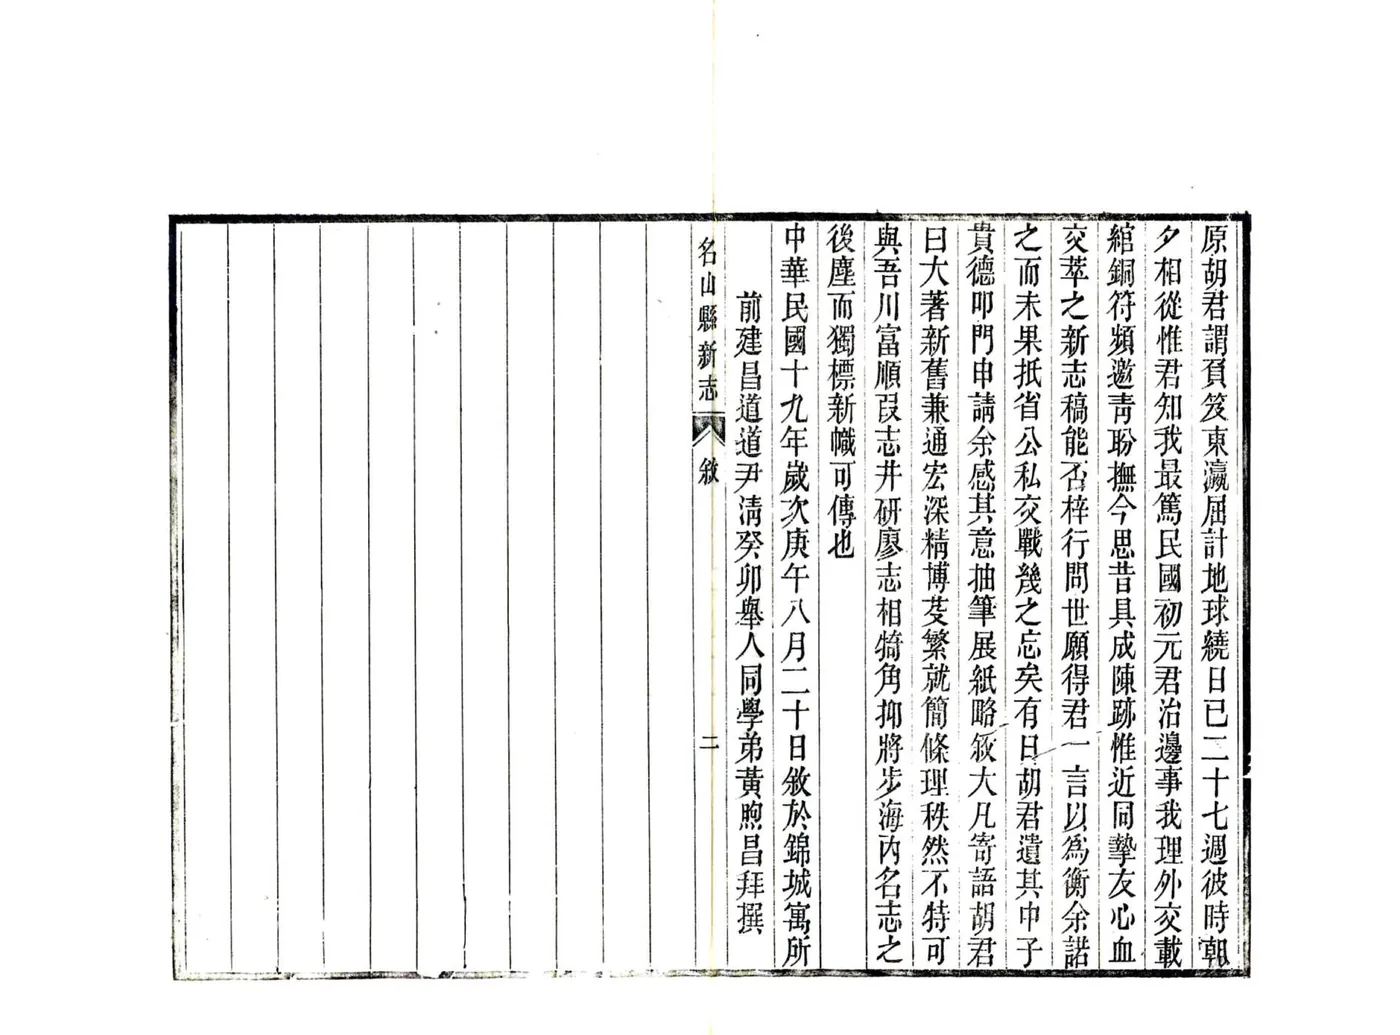 原胡君謂負笈東瀛屈計地球繞日已二十七週彼時朝
夕相從惟君知我最篤民國初元君治邊事我理外交載
綰銅符頻邀青盼撫今思昔具成陳跡惟近同摯友心血
交萃之新志稿能否梓行問世願得君一言以為衡余諾
之而未果抵省公私交戰幾之忘矣有日胡君遺其中子
貴德叩門申請余感其意抽筆展紙略敘大凡寄語胡君
曰大著新舊兼通宏深精博芟繁就簡條理秩然不特可
與吾川富順段志井研廖志相犄角抑將步海內名志之
後塵而獨標新幟可傳也
中華民國十九年歲次庚午八月二十日敘於錦城寓所
前建昌道道尹淸癸卯舉人同學弟黃煦昌拜撰
名山縣新志
敘
二